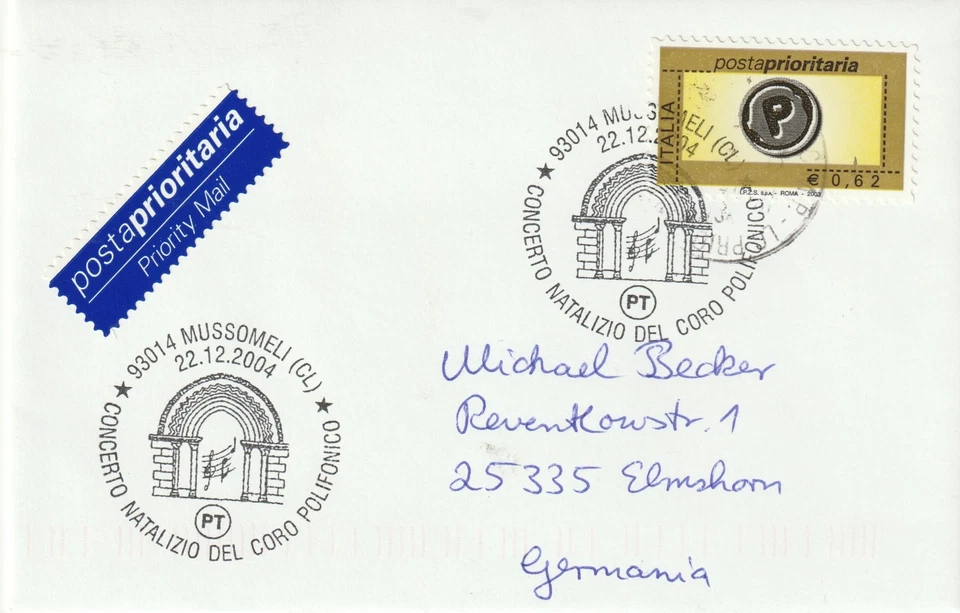 postaprioritaria
Priority Mail
postaprioritaria
ITALIA
€ 0,62
I.P.Z.S. S.p.A. - ROMA - 2003
93014 MUSSOMELI (CL)
22.12.2004
CONCERTO NATALIZIO DEL CORO POLIFONICO
PT
93014 MUSSOMELI (CL)
22.12.2004
CONCERTO NATALIZIO DEL CORO POLIFONICO
PT
Michael Becker
Reventlowstr. 1
25335 Elmshorn
Germania